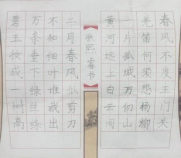 碧玉妆成一树高
万条垂下绿丝绦
不知细叶谁裁出
二月春风似剪刀
黄河远上白云间
一片孤城万仞山
羌笛何须怨杨柳
春风不度玉门关